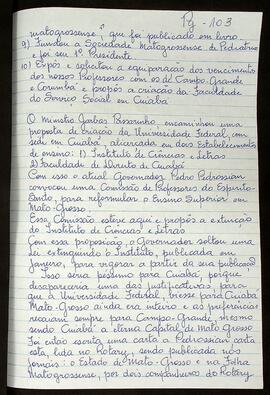 Pg - 103
matogrossense", que foi publicado em livro
9) Fundou a Sociedade Matogrossense de Pediatria
e foi seu 1º Presidente
10) Expôs e solicitou a equiparação dos vencimentos
dos nossos Professores com os de Campo-Grande
e Corumbá e propôs a criação da Faculdade
do Serviço Social em Cuiabá
O Ministro Jarbas Passarinho encaminhou uma
proposta de criação da Universidade Federal, com
sede em Cuiabá, alicerçada em dois Estabelecimentos
de ensino: 1) Instituto de Ciências e Letras
2) Faculdade de Direito de Cuiabá
Com esse o atual Governador Pedro Pedrossian
convocou uma Comissão de Professores do Espírito-
Santo, para reformular o Ensino Superior em
Mato-Grosso
Essa Comissão esteve aqui e propôs a extinção
do Instituto de Ciências e Letras
Com essa proposição o Governador soltou uma
Lei extinguindo o Instituto, publicada em
Janeiro, para vigorar a partir da sua publicação
Isso seria péssimo para Cuiabá, porque
desapareceria uma das justificativas para
que a Universidade Federal, viesse para Cuiabá
Mato-Grosso ainda era inteiro e as preferências
recaíam sempre para Campo-Grande, mesmo
sendo Cuiabá a eterna Capital de Mato Grosso
Foi então escrita uma carta a Pedrossian carta
esta, lida no Rotary, sendo publicada nos
jornais: o Estado de Mato-Grosso e na Folha
Matogrossense, por dois companheiros do Rotary